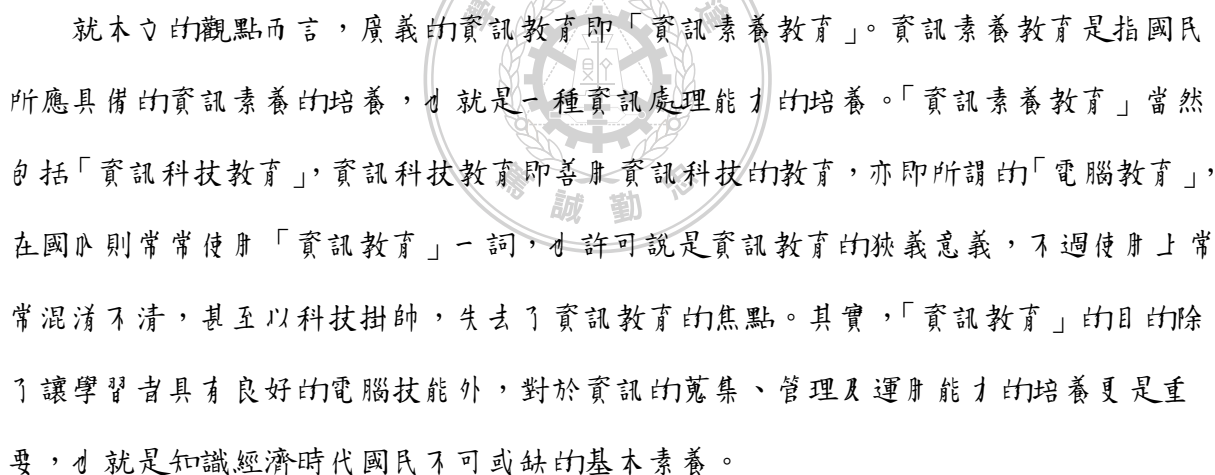 就本文的觀點而言，廣義的資訊教育即「資訊素養教育」。資訊素養教育是指國民
所應具備的資訊素養的培養，也就是一種資訊處理能力的培養。「資訊素養教育」當然
包括「資訊科技教育」，資訊科技教育即善用資訊科技的教育，亦即所謂的「電腦教育」，
在國內則常常使用「資訊教育」一詞，也許可說是資訊教育的狹義意義，不過使用上常
常混淆不清，甚至以科技掛帥，失去了資訊教育的焦點。其實，「資訊教育」的目的除
了讓學習者具有良好的電腦技能外，對於資訊的蒐集、管理及運用能力的培養更是重
要，也就是知識經濟時代國民不可或缺的基本素養。
誠勤